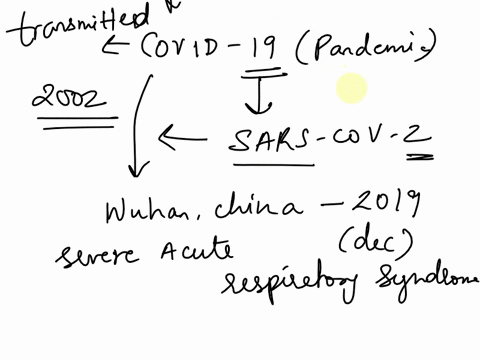 transmitted
← COVID-19 (Pandemic)
2002
← SARS-COV-2
Wuhan, china - 2019
(dec)
severe Acute
respiretory syndrome